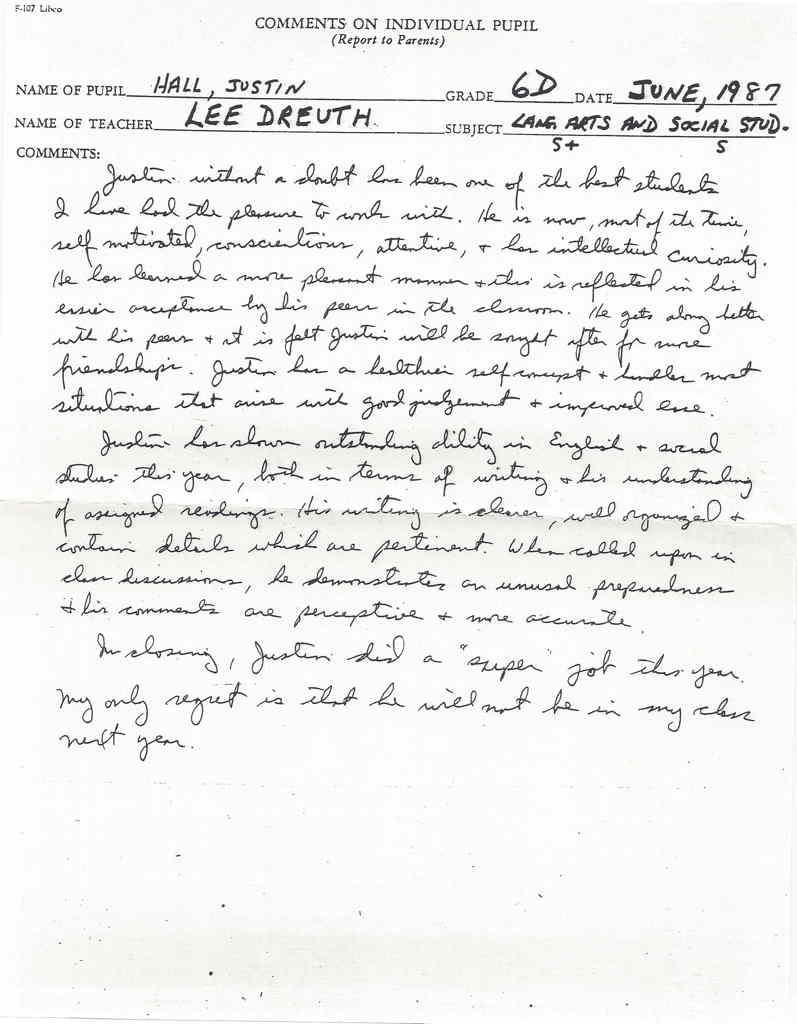 F-107 Libco
COMMENTS ON INDIVIDUAL PUPIL
(Report to Parents)
NAME OF PUPIL HALL, JUSTIN GRADE 6D DATE JUNE, 1987
NAME OF TEACHER LEE DREUTH SUBJECT LANG. ARTS AND SOCIAL STUD.
COMMENTS: S+ S
Justin without a doubt has been one of the best students
I have had the pleasure to work with. He is now, most of the time,
self motivated, conscientious, attentive, + has intellectual curiosity.
He has learned a more pleasant manner + this is reflected in his
easier acceptance by his peers in the classroom. He gets along better
with his peers + it is felt Justin will be sought after for more
friendships. Justin has a healthier self concept + handles most
situations that arise with good judgement + improved ease.
Justin has shown outstanding ability in English + social
studies this year, both in terms of writing + his understanding
of assigned readings. His writing is clearer, well organized +
contain details which are pertinent. When called upon in
class discussions, he demonstrates an unusual preparedness
+ his comments are perceptive + more accurate.
In closing, Justin did a "super" job this year.
My only regret is that he will not be in my class
next year.